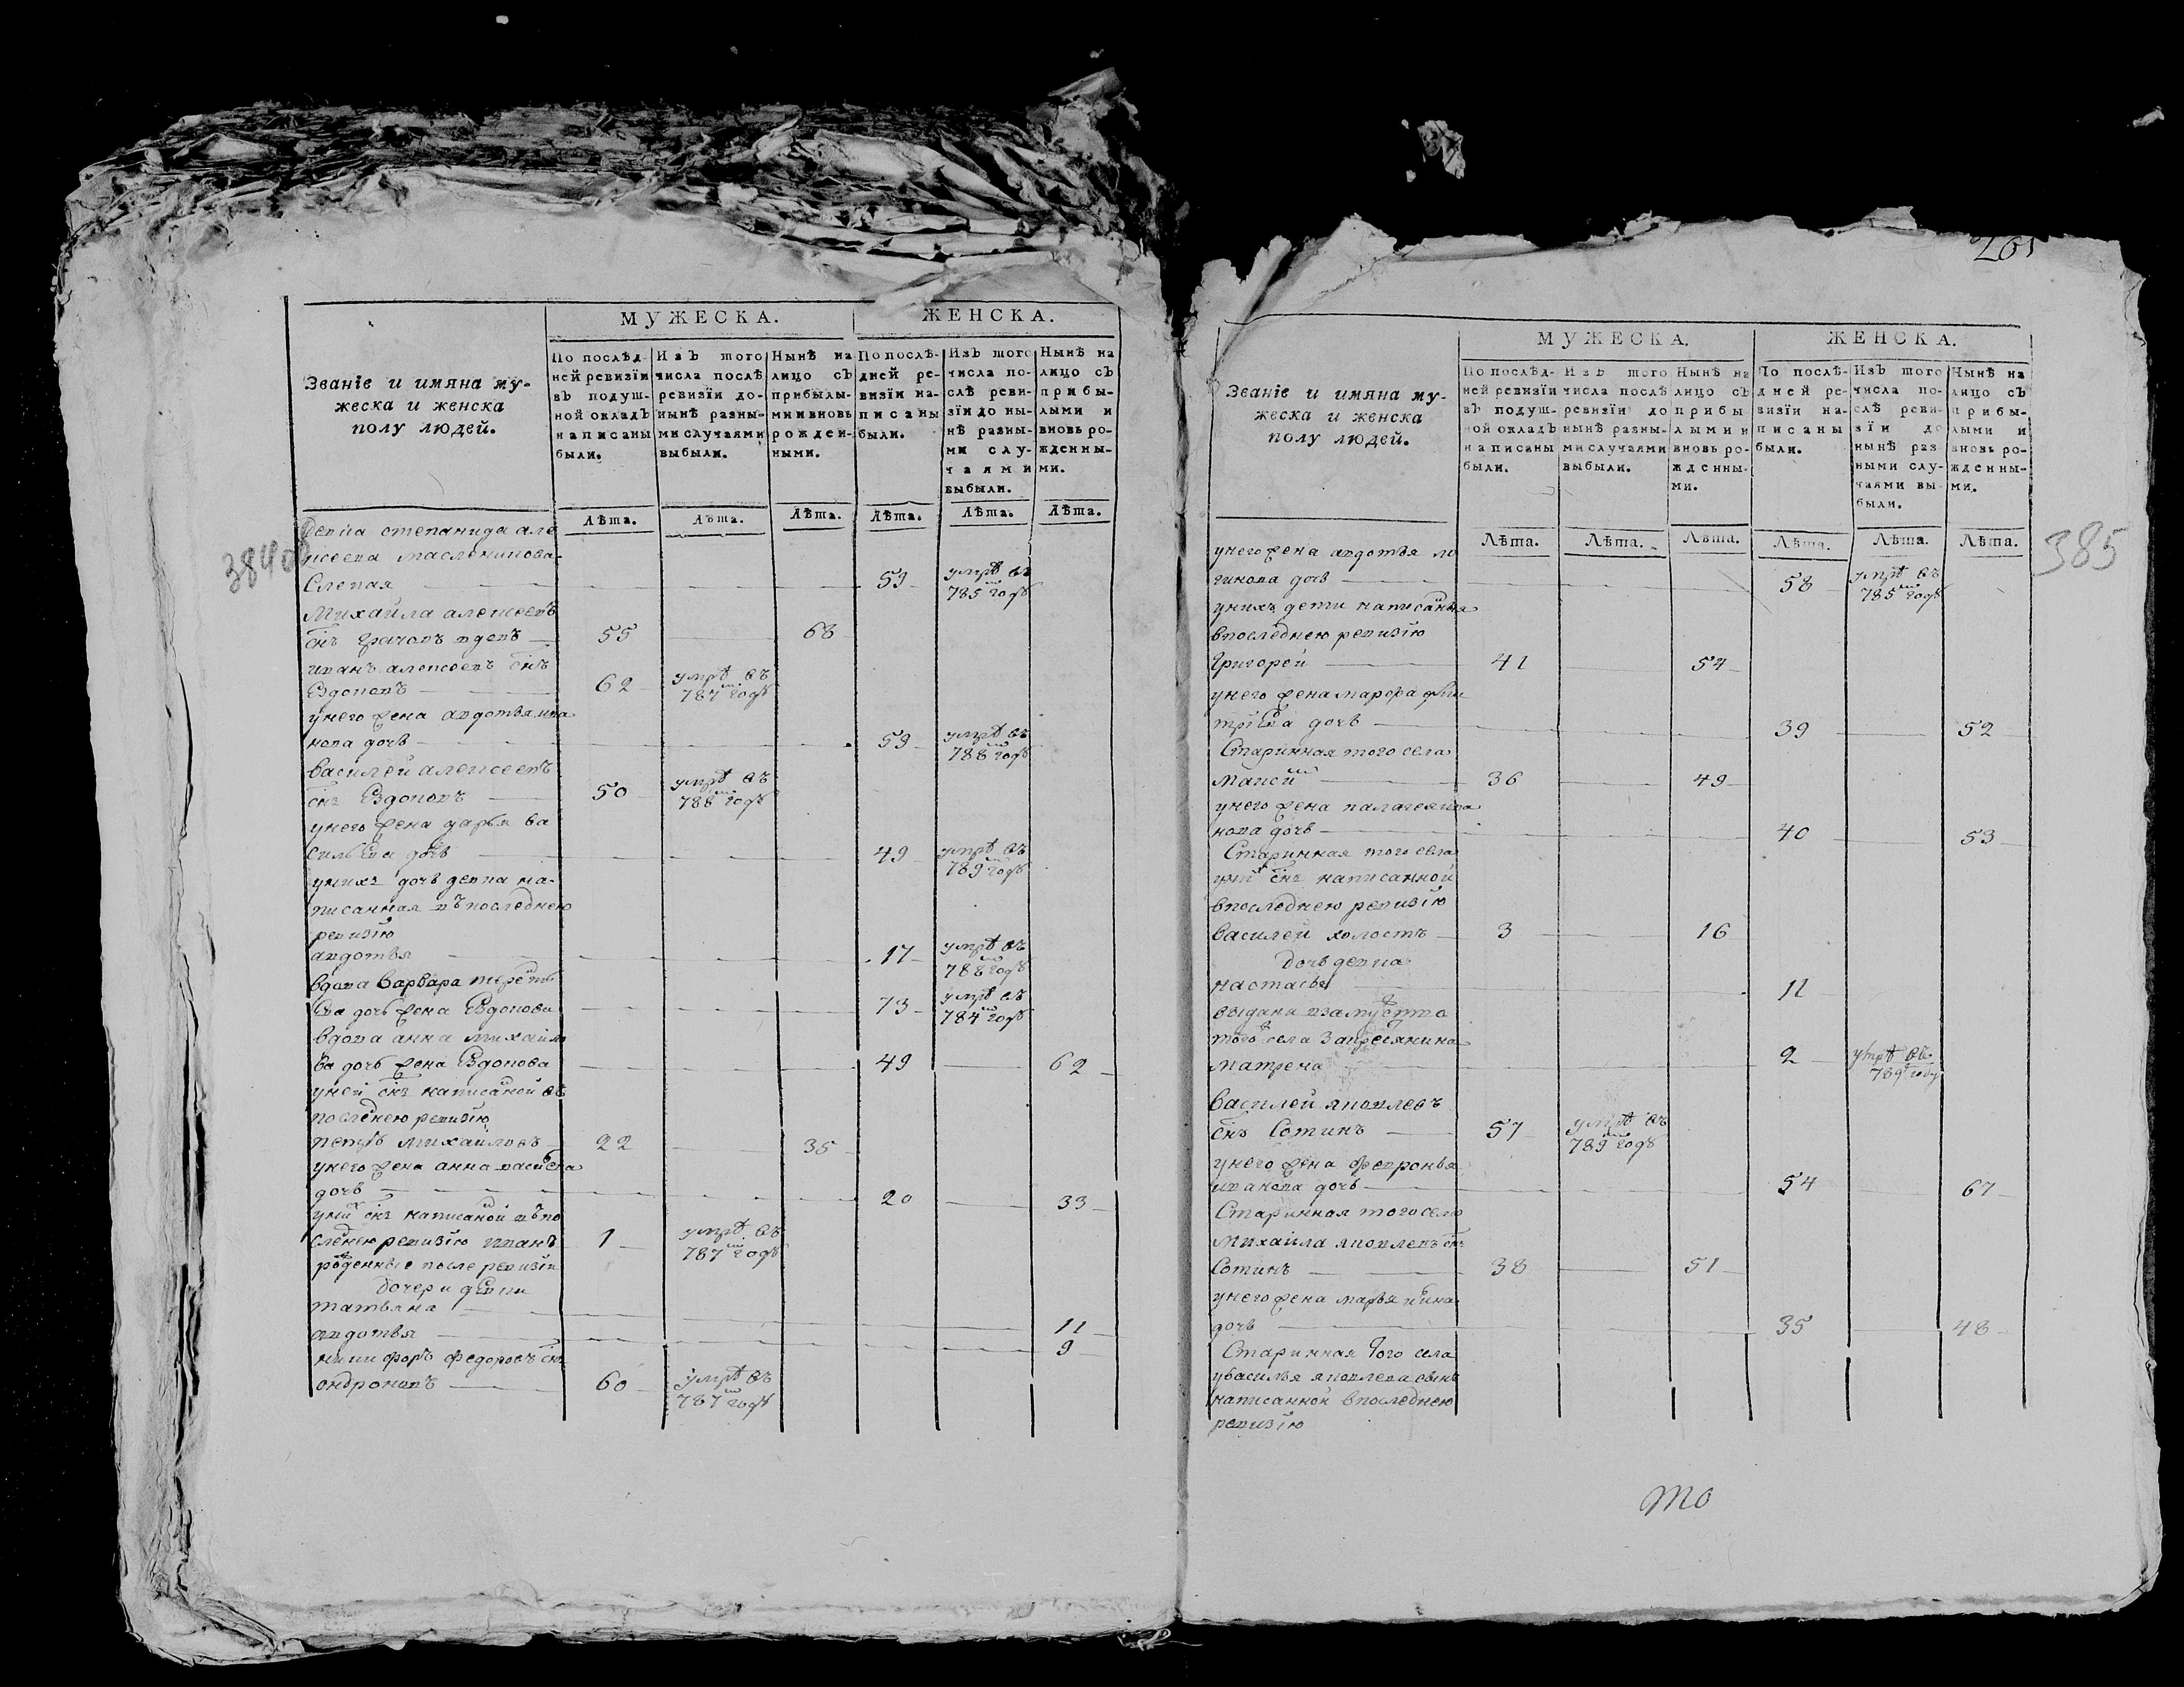 МУЖЕСКА. ЖЕНСКА.
Званіе и имяна му-
жеска и женска
полу людей.
По послѣд-
ней ревизїи
въ подуш-
ной окладъ
написаны
были.
Изъ того
числа послѣ
ревизїи до-
нынѣ разны-
ми случаями
выбыли.
Нынѣ на
лицо съ
прибылы-
ми и вновь
рожден-
ными.
По послѣ-
дней ре-
визїи на-
писаны
были.
Изъ того
числа по-
слѣ реви-
зїи до ны-
нѣ разны-
ми слу-
чаями
выбыли.
Нынѣ на
лицо съ
прибы-
лыми и
вновь ро-
жденны-
ми.
Лѣта. Лѣта. Лѣта. Лѣта. Лѣта. Лѣта.
девка степанида але
ксеева масленикова
Слепая 59 умрѣ въ 785м годѣ
Михайла алексеевъ
снъ грачовъ вдовъ 55 68
иванъ алексеевъ снъ
Вдовевъ 62 умрѣ въ 787м годѣ
унего жена авдотья ива
нова дочь 59 умрѣ въ 788м годѣ
василей алексеевъ
снъ Вдововъ 50 умрѣ въ 788м годѣ
унего жена дарья ва
сильева дочь 49 умрѣ въ 789м годѣ
унихъ дочь девка на-
писанная въ последнею
ревизїю
авдотья 17 умрѣ въ 788м годѣ
вдова варвара
дочь жена 73 умрѣ въ 784м годѣ
вдова анна михайло
ва дочь жена 49 62
уней снъ написаной въ
последнею ревизїю
петръ михайловъ 22 35
унего жена анна васильева
дочь 20 33
уних снъ написаной въ по
следнею ревизїю иванъ 1 умрѣ въ 787м годѣ
рожденные после ревизїи
дочери девки
татьяна 11
авдотья 9
никифоръ федоровъ снъ
андроновъ 60 умрѣ въ 787м годѣ
385
МУЖЕСКА. ЖЕНСКА.
Званіе и имяна му-
жеска и женска
полу людей.
По послѣд-
ней ревизїи
въ подуш-
ной окладъ
написаны
были.
Изъ того
числа послѣ
ревизїи до
нынѣ разны-
ми случаями
выбыли.
Нынѣ на
лицо съ
прибы
лыми и
вновь ро-
жденны-
ми.
По послѣ-
дней ре-
визїи на-
писаны
были.
Изъ того
числа по-
слѣ реви-
зїи до
нынѣ раз
ными слу-
чаями вы-
были.
Нынѣ на
лицо съ
прибы-
лыми и
вновь ро-
жденны-
ми.
Лѣта. Лѣта. Лѣта. Лѣта. Лѣта. Лѣта.
унего жена авдотья ло
гинова дочь 58 умрѣ въ 785м годѣ
унихъ дети написанья
впоследнею ревизїю
Григорей 41 54
унего жена марфа дми
трїева дочь 39 52
Старинная того села
Макси 36 49
унего жена палагея ива
нова дочь 40 53
Старинная того села
уних снъ написанной
впоследнею ревизїю
василей холостъ 3 16
дочь девка
настасья 11
выдана взамужство
того села
матрена 2 умрѣ въ 789 году
василей яковлевъ
снъ Сотинъ 57 умрѣ въ 789м годѣ
унего жена февронья
иванова дочь 54 67
Старинная того села
михайла яковлевъ снъ
Сотинъ 38 51
унего жена марья
дочь 35 48
Старинная того села
увасилья яковлева сынъ
написанной впоследнею
ревизїю
то